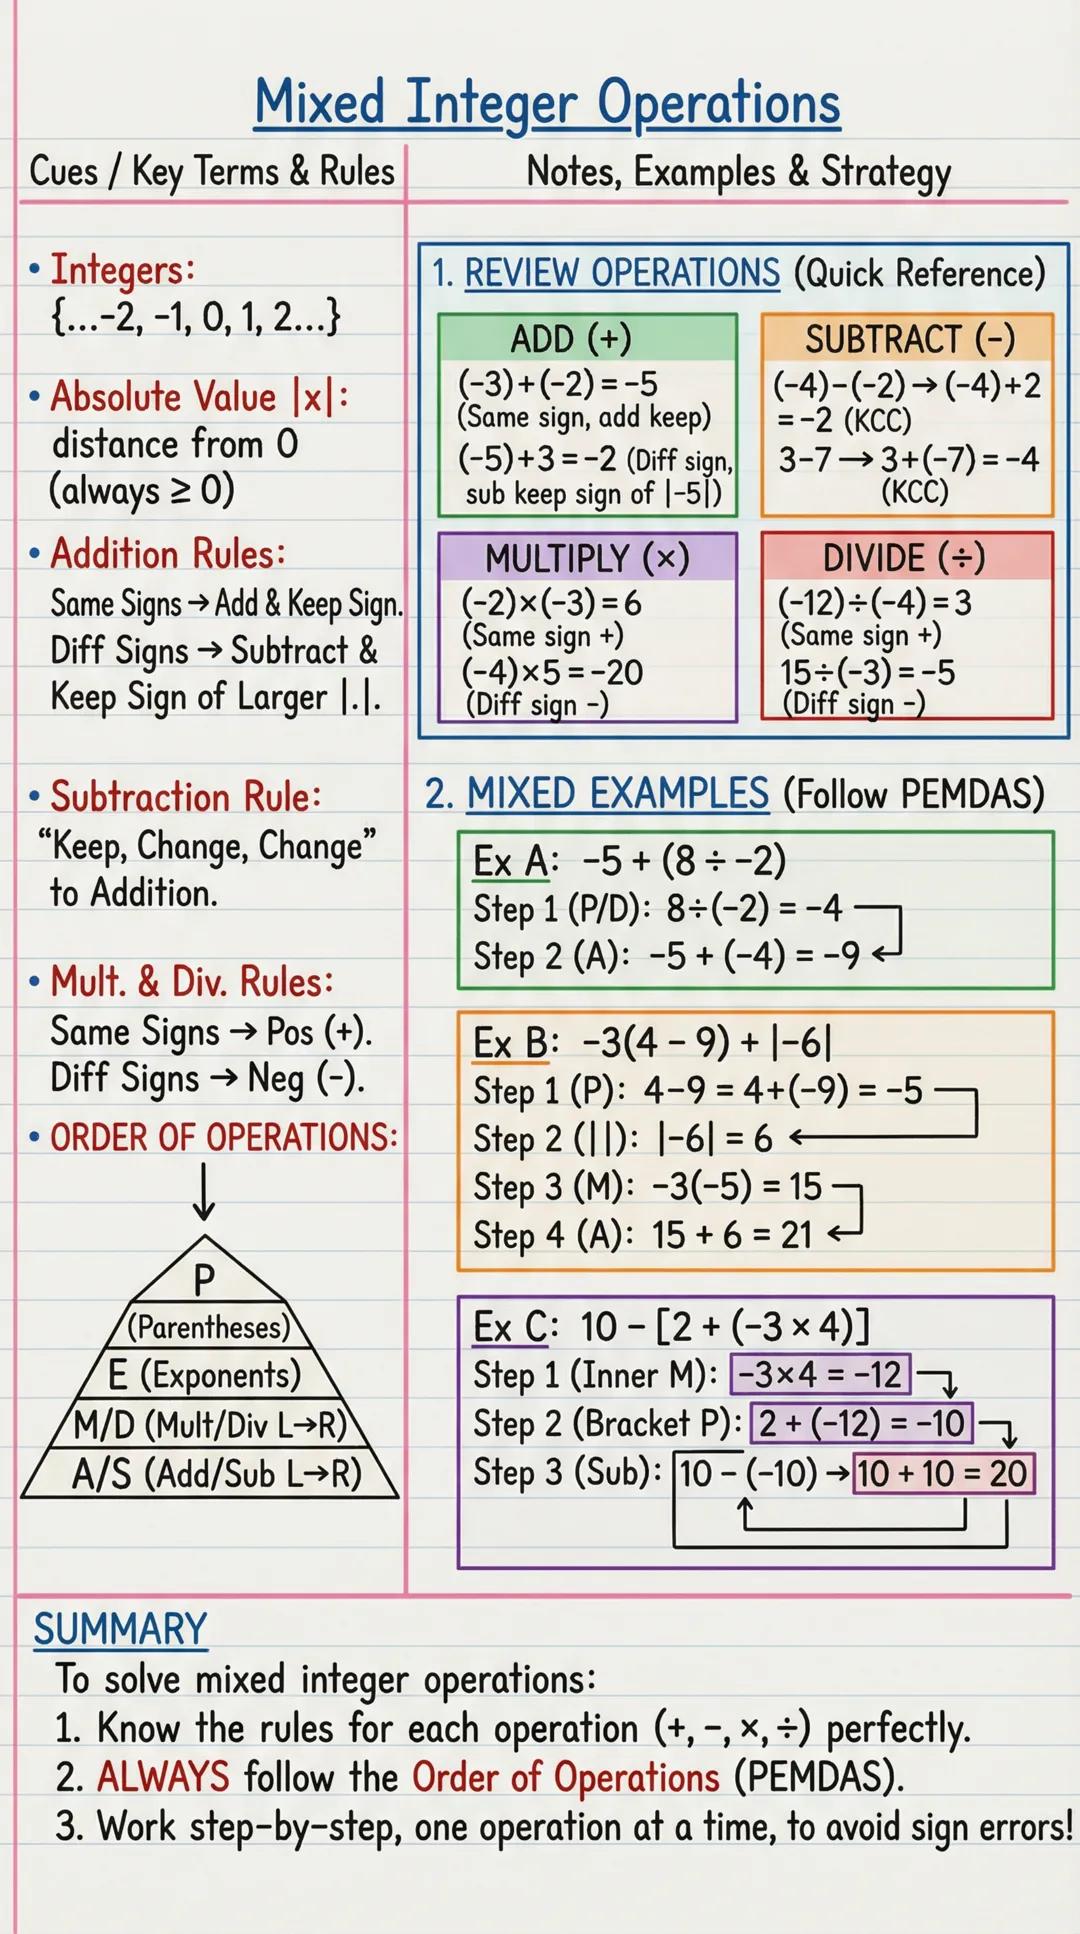 Mixed Integer Operations
Cues / Key Terms & Rules
• Integers:
{...-2, -1, 0, 1, 2...}
• Absolute Value |x|:
distance from 0
(always ≥ 0)
• Addition Rules:
Same Signs → Add & Keep Sign.
Diff Signs → Subtract &
Keep Sign of Larger |.|.
• Subtraction Rule:
“Keep, Change, Change”
to Addition.
• Mult. & Div. Rules:
Same Signs → Pos (+).
Diff Signs → Neg (-).
• ORDER OF OPERATIONS:
P
(Parentheses)
E (Exponents)
M/D (Mult/Div L→R)
A/S (Add/Sub L→R)
Notes, Examples & Strategy
1. REVIEW OPERATIONS (Quick Reference)
ADD (+)
(-3)+(-2) = -5
(Same sign, add keep)
(-5)+3 = -2 (Diff sign,
sub keep sign of |-5|)
SUBTRACT (-)
(-4)-(-2) → (-4)+2
= -2 (KCC)
3-7 → 3+(-7) = -4
(KCC)
MULTIPLY (×)
(-2)×(-3) = 6
(Same sign +)
(-4)×5 = -20
(Diff sign -)
DIVIDE (÷)
(-12)÷(-4) = 3
(Same sign +)
15÷(-3) = -5
(Diff sign -)
2. MIXED EXAMPLES (Follow PEMDAS)
Ex A: -5 + (8 ÷ -2)
Step 1 (P/D): 8÷(-2) = -4
Step 2 (A): -5 + (-4) = -9
Ex B: -3(4 - 9) + |-6|
Step 1 (P): 4-9 = 4+(-9) = -5
Step 2 (||): |-6| = 6
Step 3 (M): -3(-5) = 15
Step 4 (A): 15 + 6 = 21
Ex C: 10 - [2 + (-3 × 4)]
Step 1 (Inner M): -3×4 = -12
Step 2 (Bracket P): 2 + (-12) = -10
Step 3 (Sub): 10 - (-10) → 10 + 10 = 20
SUMMARY
To solve mixed integer operations:
1. Know the rules for each operation (+, -, ×, ÷) perfectly.
2. ALWAYS follow the Order of Operations (PEMDAS).
3. Work step-by-step, one operation at a time, to avoid sign errors!